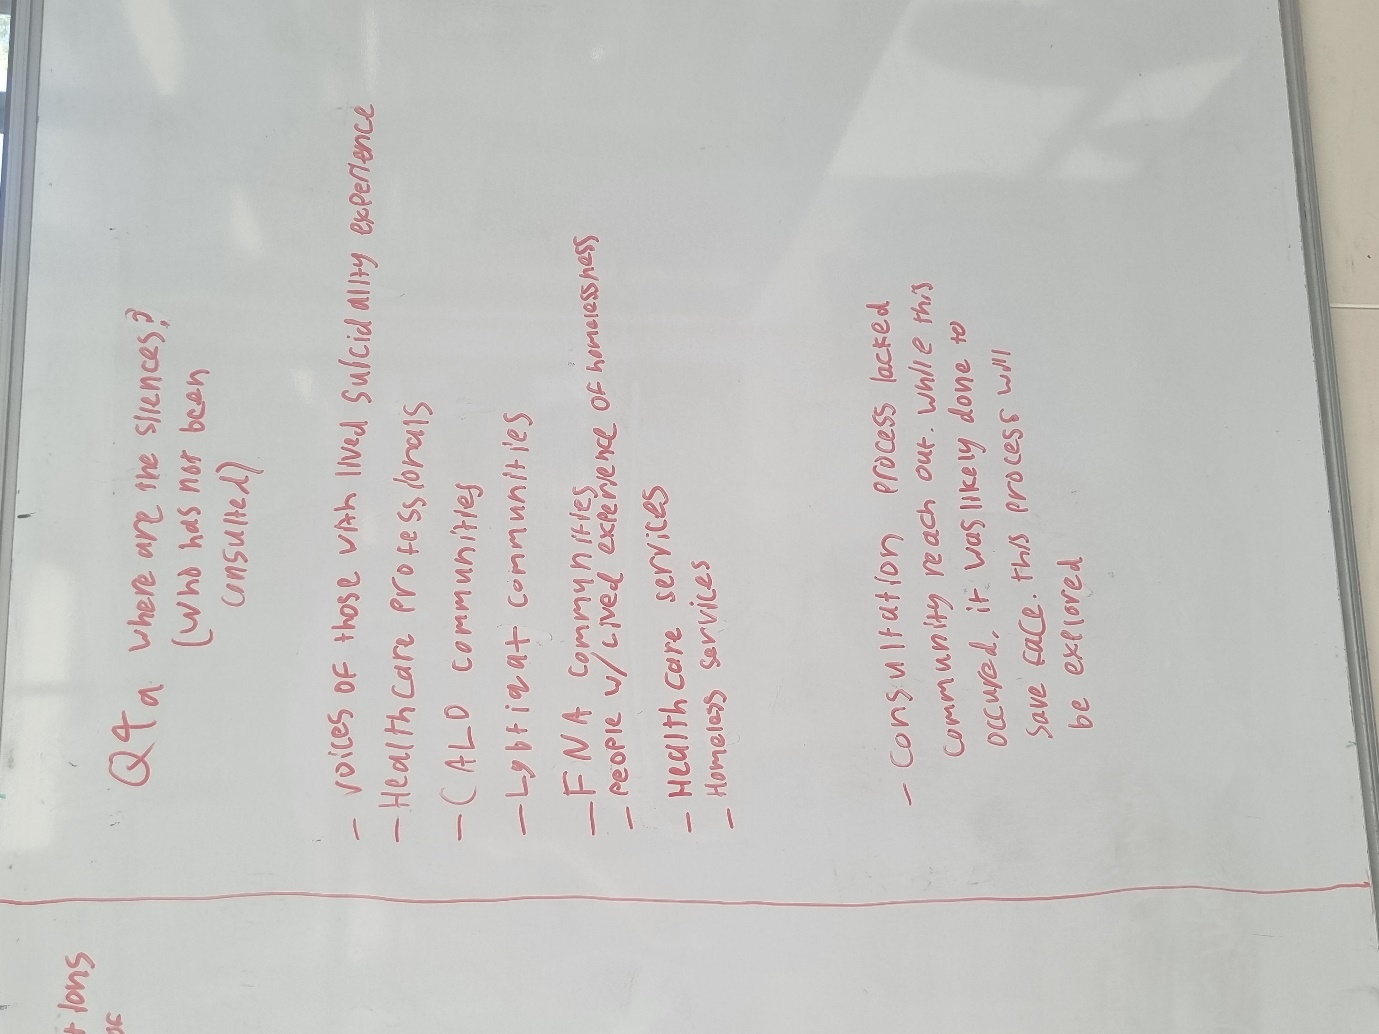 Q4a where are the silences?
(who has not been
consulted)
- voices of those with lived suicidality experience
- Healthcare professionals
- CALD communities
- Lgbtiqat communities
- FNA communities
- people w/ lived experience of homelessness
- Healthcare services
- Homeless services
- Consultation process lacked
community reach out. while this
occured, it was likely done to
save face. this process will
be explored
tions
of